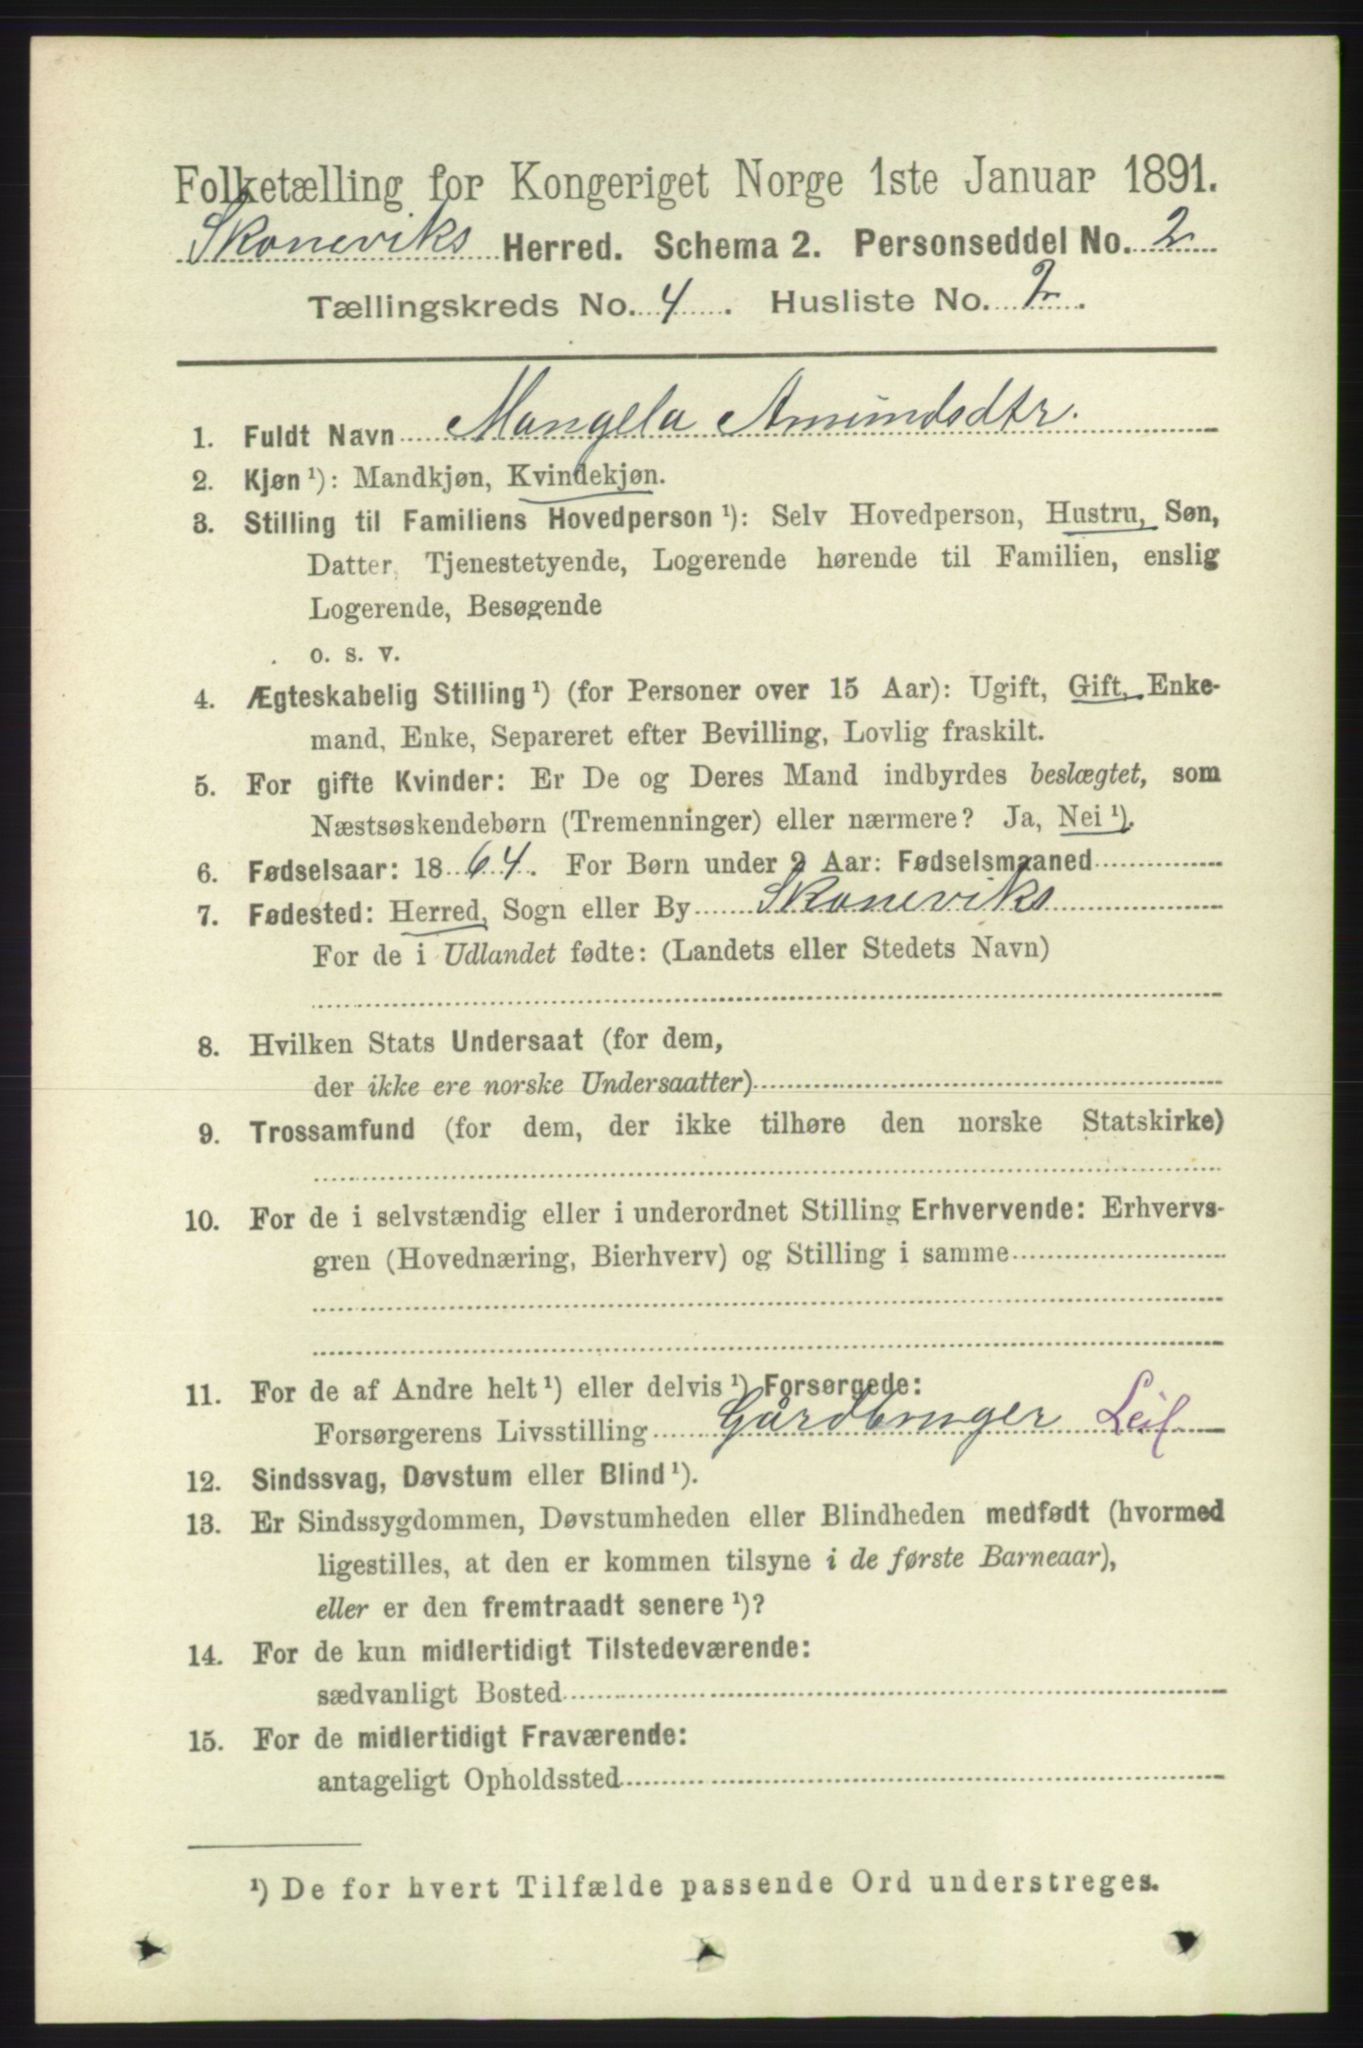 Folketælling for Kongeriget Norge 1ste Januar 1891.
Skoneviks Herred. Schema 2. Personseddel No. 2
Tællingskreds No. 4. Husliste No. 2.
1. Fuldt Navn Mangela Amundsdtr.
2. Kjøn ¹): Mandkjøn, Kvindekjøn.
3. Stilling til Familiens Hovedperson ¹): Selv Hovedperson, Hustru, Søn,
Datter, Tjenestetyende, Logerende hørende til Familien, enslig
Logerende, Besøgende
o. s. v.
4. Ægteskabelig Stilling ¹) (for Personer over 15 Aar): Ugift, Gift, Enke-
mand, Enke, Separeret efter Bevilling, Lovlig fraskilt.
5. For gifte Kvinder: Er De og Deres Mand indbyrdes beslægtet, som
Næstsøskendebørn (Tremenninger) eller nærmere? Ja, Nei ¹).
6. Fødselsaar: 1864. For Børn under 2 Aar: Fødselsmaaned
7. Fødested: Herred, Sogn eller By Skoneviks
For de i Udlandet fødte: (Landets eller Stedets Navn)
8. Hvilken Stats Undersaat (for dem,
der ikke ere norske Undersaatter)
9. Trossamfund (for dem, der ikke tilhøre den norske Statskirke)
10. For de i selvstændig eller i underordnet Stilling Erhvervende: Erhvervs-
gren (Hovednæring, Bierhverv) og Stilling i samme
11. For de af Andre helt ¹) eller delvis ¹) Forsørgede:
Forsørgerens Livsstilling Gårdbruger Leil
12. Sindssvag, Døvstum eller Blind ¹).
13. Er Sindssygdommen, Døvstumheden eller Blindheden medfødt (hvormed
ligestilles, at den er kommen tilsyne i de første Barneaar),
eller er den fremtraadt senere ¹)?
14. For de kun midlertidigt Tilstedeværende:
sædvanligt Bosted
15. For de midlertidigt Fraværende:
antageligt Opholdssted
¹) De for hvert Tilfælde passende Ord understreges.